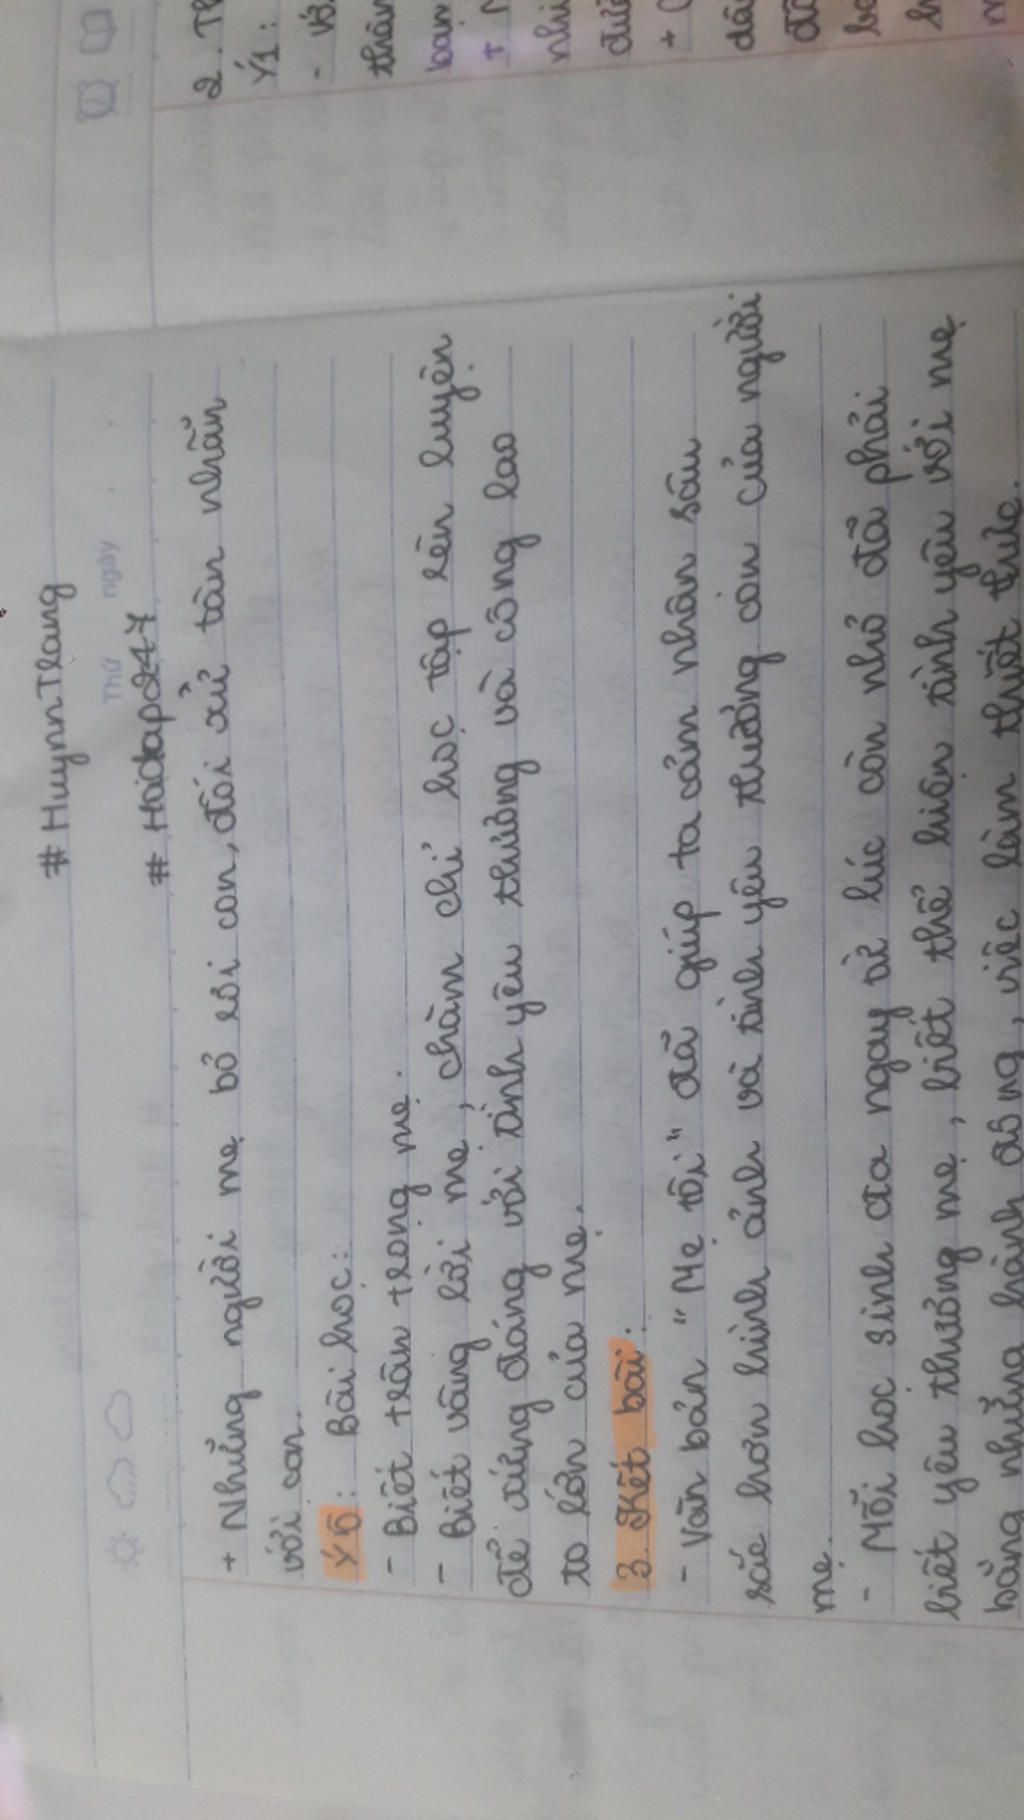 # HuynnTrang
Thứ ngày
# Hoidap247
+ Những người mẹ bỏ rơi con, đối xử tàn nhẫn
với con.
Ý5: Bài học:
- Biết trân trọng mẹ.
- Biết vâng lời mẹ, chăm chỉ học tập rèn luyện
để xứng đáng với tình yêu thương và công lao
to lớn của mẹ.
3. Kết bài:
- Văn bản "Mẹ tôi" đã giúp ta cảm nhân sâu
sắc hơn hình ảnh và tình yêu thương con của người
mẹ.
- Mỗi học sinh cta ngay từ lúc còn nhỏ đã phải
biết yêu thương mẹ, biết thể hiện tình yêu với mẹ
bằng những hành động, việc làm thiết thực.
2. Th
Ý1:
- Vớ
thân
bạn
+ N
nhi
đươ
+